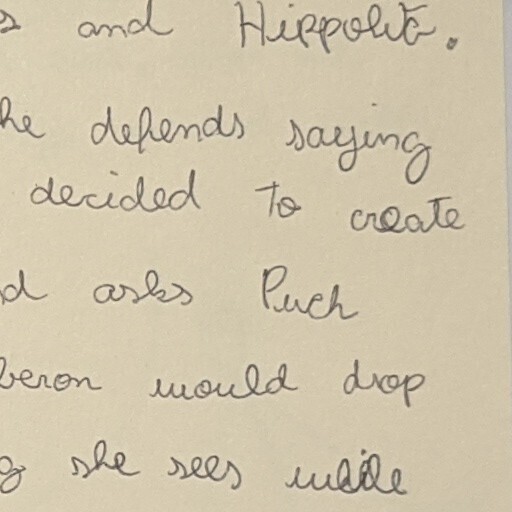 s and Hippolit.
he defends saying
decided to create
d asks Puch
beron would drop
g she sees